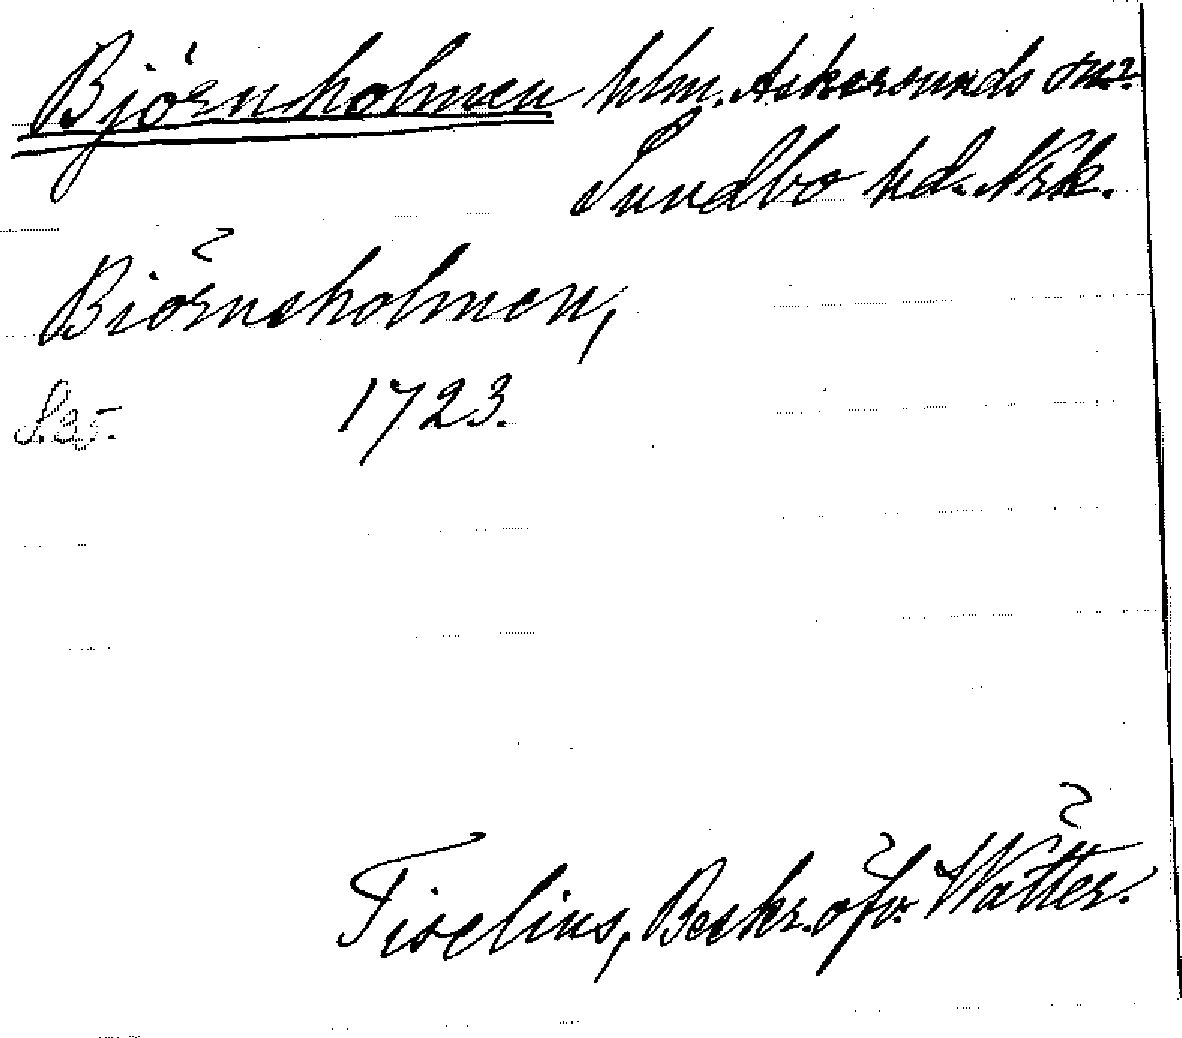 Björnholmen hlm. Askersunds snr
Sundbo hd. Nrk.
Biörnsholmen,
S. 35. 1723.
Tiselius, Beskr. öfv. Wätter.